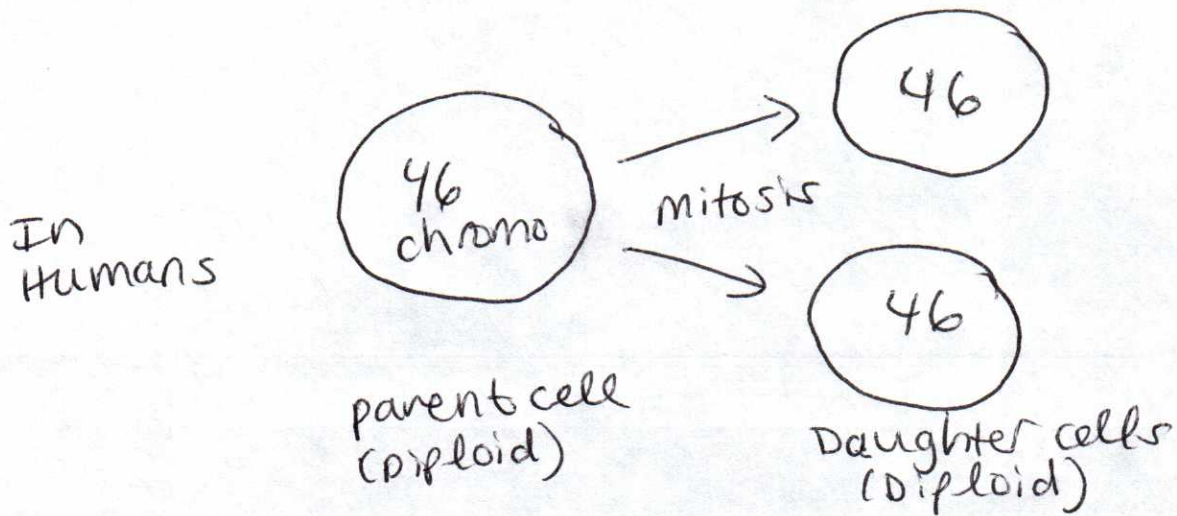 In
Humans
46
chromo
mitosis
46
46
parent cell
(Diploid)
Daughter cells
(Diploid)